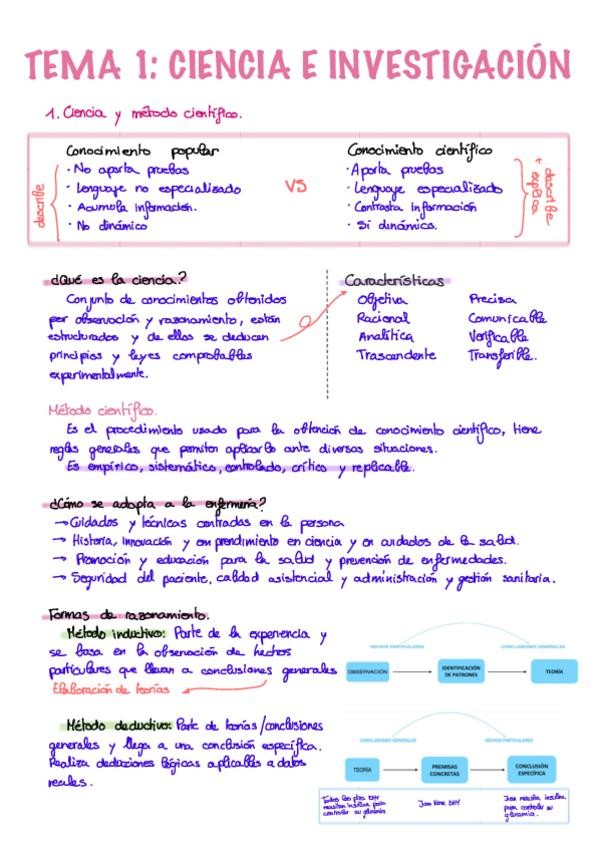 TEMA 1: CIENCIA E INVESTIGACIÓN
1. Ciencia y método científico.
Conocimiento popular
· No aporta pruebas
· Lenguaje no especializado
· Acumula información.
· No dinámico
describe
VS
Conocimiento científico
· Aporta pruebas
· Lenguaje especializado
· Contrasta información
· Sí dinámico.
describe
+ explica
¿Qué es la ciencia?
Conjunto de conocimientos obtenidos
por observación y razonamiento, están
estructurados y de ellos se deducen
principios y leyes comprobables
experimentalmente.
Características
Objetiva Precisa
Racional Comunicable
Analítica Verificable
Trascendente Transferible.
Método científico.
Es el procedimiento usado para la obtención de conocimiento científico, tiene
reglas generales que permiten aplicarlo ante diversas situaciones.
Es empírico, sistemático, controlado, crítico y replicable.
¿Cómo se adapta a la enfermería?
→ Cuidados y técnicas centradas en la persona
→ Historia, innovación y emprendimiento en ciencia y en cuidados de la salud.
→ Promoción y educación para la salud y prevención de enfermedades.
→ Seguridad del paciente, calidad asistencial y administración y gestión sanitaria.
Formas de razonamiento.
Método inductivo: Parte de la experiencia y
se basa en la observación de hechos
particulares que llevan a conclusiones generales
Elaboración de teorías
HECHOS PARTICULARES CONCLUSIONES GENERALES
OBSERVACIÓN
IDENTIFICACIÓN
DE PATRONES
TEORÍA
Método deductivo: Parte de teorías/conclusiones
generales y llega a una conclusión específica.
Realiza deducciones lógicas aplicables a datos
reales.
CONCLUSIONES GENERALES HECHOS PARTICULARES
TEORÍA
PREMISAS
CONCRETAS
CONCLUSIÓN
ESPECÍFICA
Todos los ptes DM
necesitan insulina para
controlar su glucemia
Jose tiene DM
Jose necesita insulina
para controlar su
glucemia.